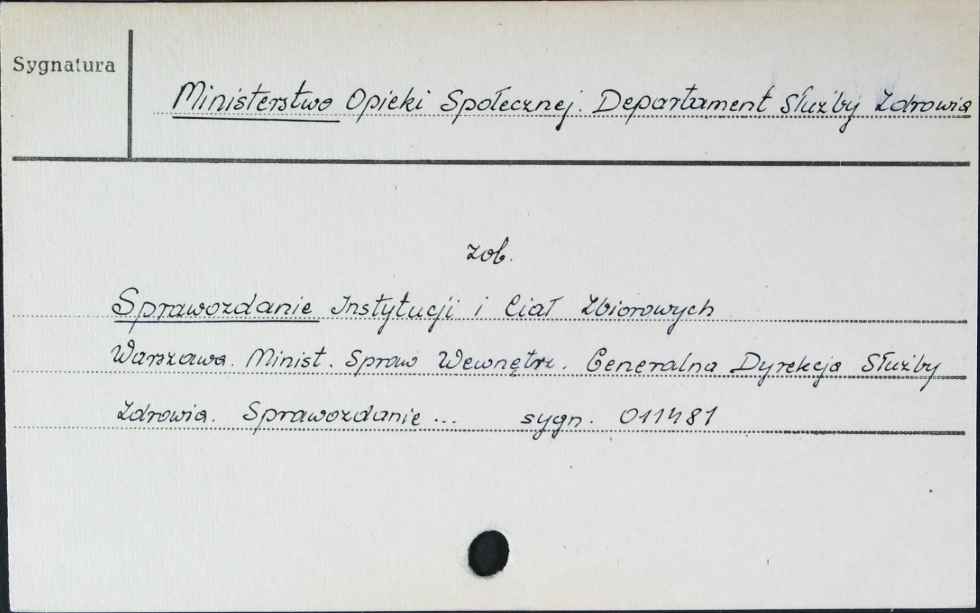 Sygnatura
Ministerstwo Opieki Społecznej. Departament Służby Zdrowia
zob.
Sprawozdanie Instytucji i Ciał Zbiorowych
Warszawa. Minist. Spraw Wewnętrz. Generalna Dyrekcja Służby
Zdrowia. Sprawozdanie... sygn. 011481